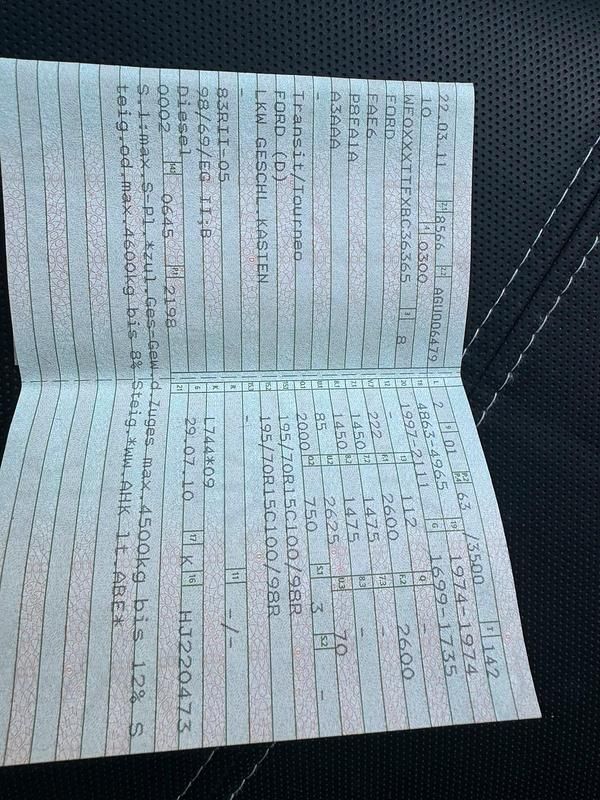 22.03.11 2.1 8566 2.2 AGU006479
10 4 0300
WF0XXXTTFXBC36365 3 8
FORD
FAE6
P8FA1A
A3AAA
-
Transit/Tourneo
FORD (D)
LKW GESCHL.KASTEN
-
83RII-05
98/69/EG II;B
Diesel
0002 14.1 0645 P.1 2198
L 2 9 01 P.2 P.4 63 /3500 T 142
18 4863-4965 19 1974-1974
20 1997-2111 G 1699-1735
12 - 13 112 Q -
V.7 222 F.1 2600 F.2 2600
7.1 1450 7.2 1475 7.3 -
8.1 1450 8.2 1475 8.3 -
U.1 85 U.2 2625 U.3 70
O.1 2000 O.2 750 S.1 3 S.2 -
15.1 195/70R15C100/98R
15.2 195/70R15C100/98R
15.3 -
R - 11 -/-
K L744*09
6 29.07.10 17 K 16 HJ220473
21 S.1:max.S-Pl.*zul.Ges-Gew.d.Zuges max.4500kg bis 12% S
teig.od.max.4600kg bis 8% Steig.*ww.AHK lt.ABE*